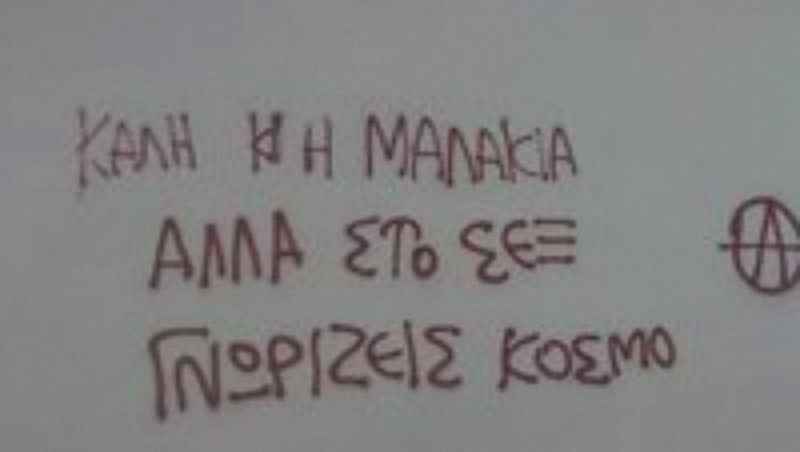 ΚΑΛΗ Κ Η ΜΑΛΑΚΙΑ
ΑΛΛΑ ΣΤΟ ΣΕΞ
ΓΝΩΡΙΖΕΙΣ ΚΟΣΜΟ